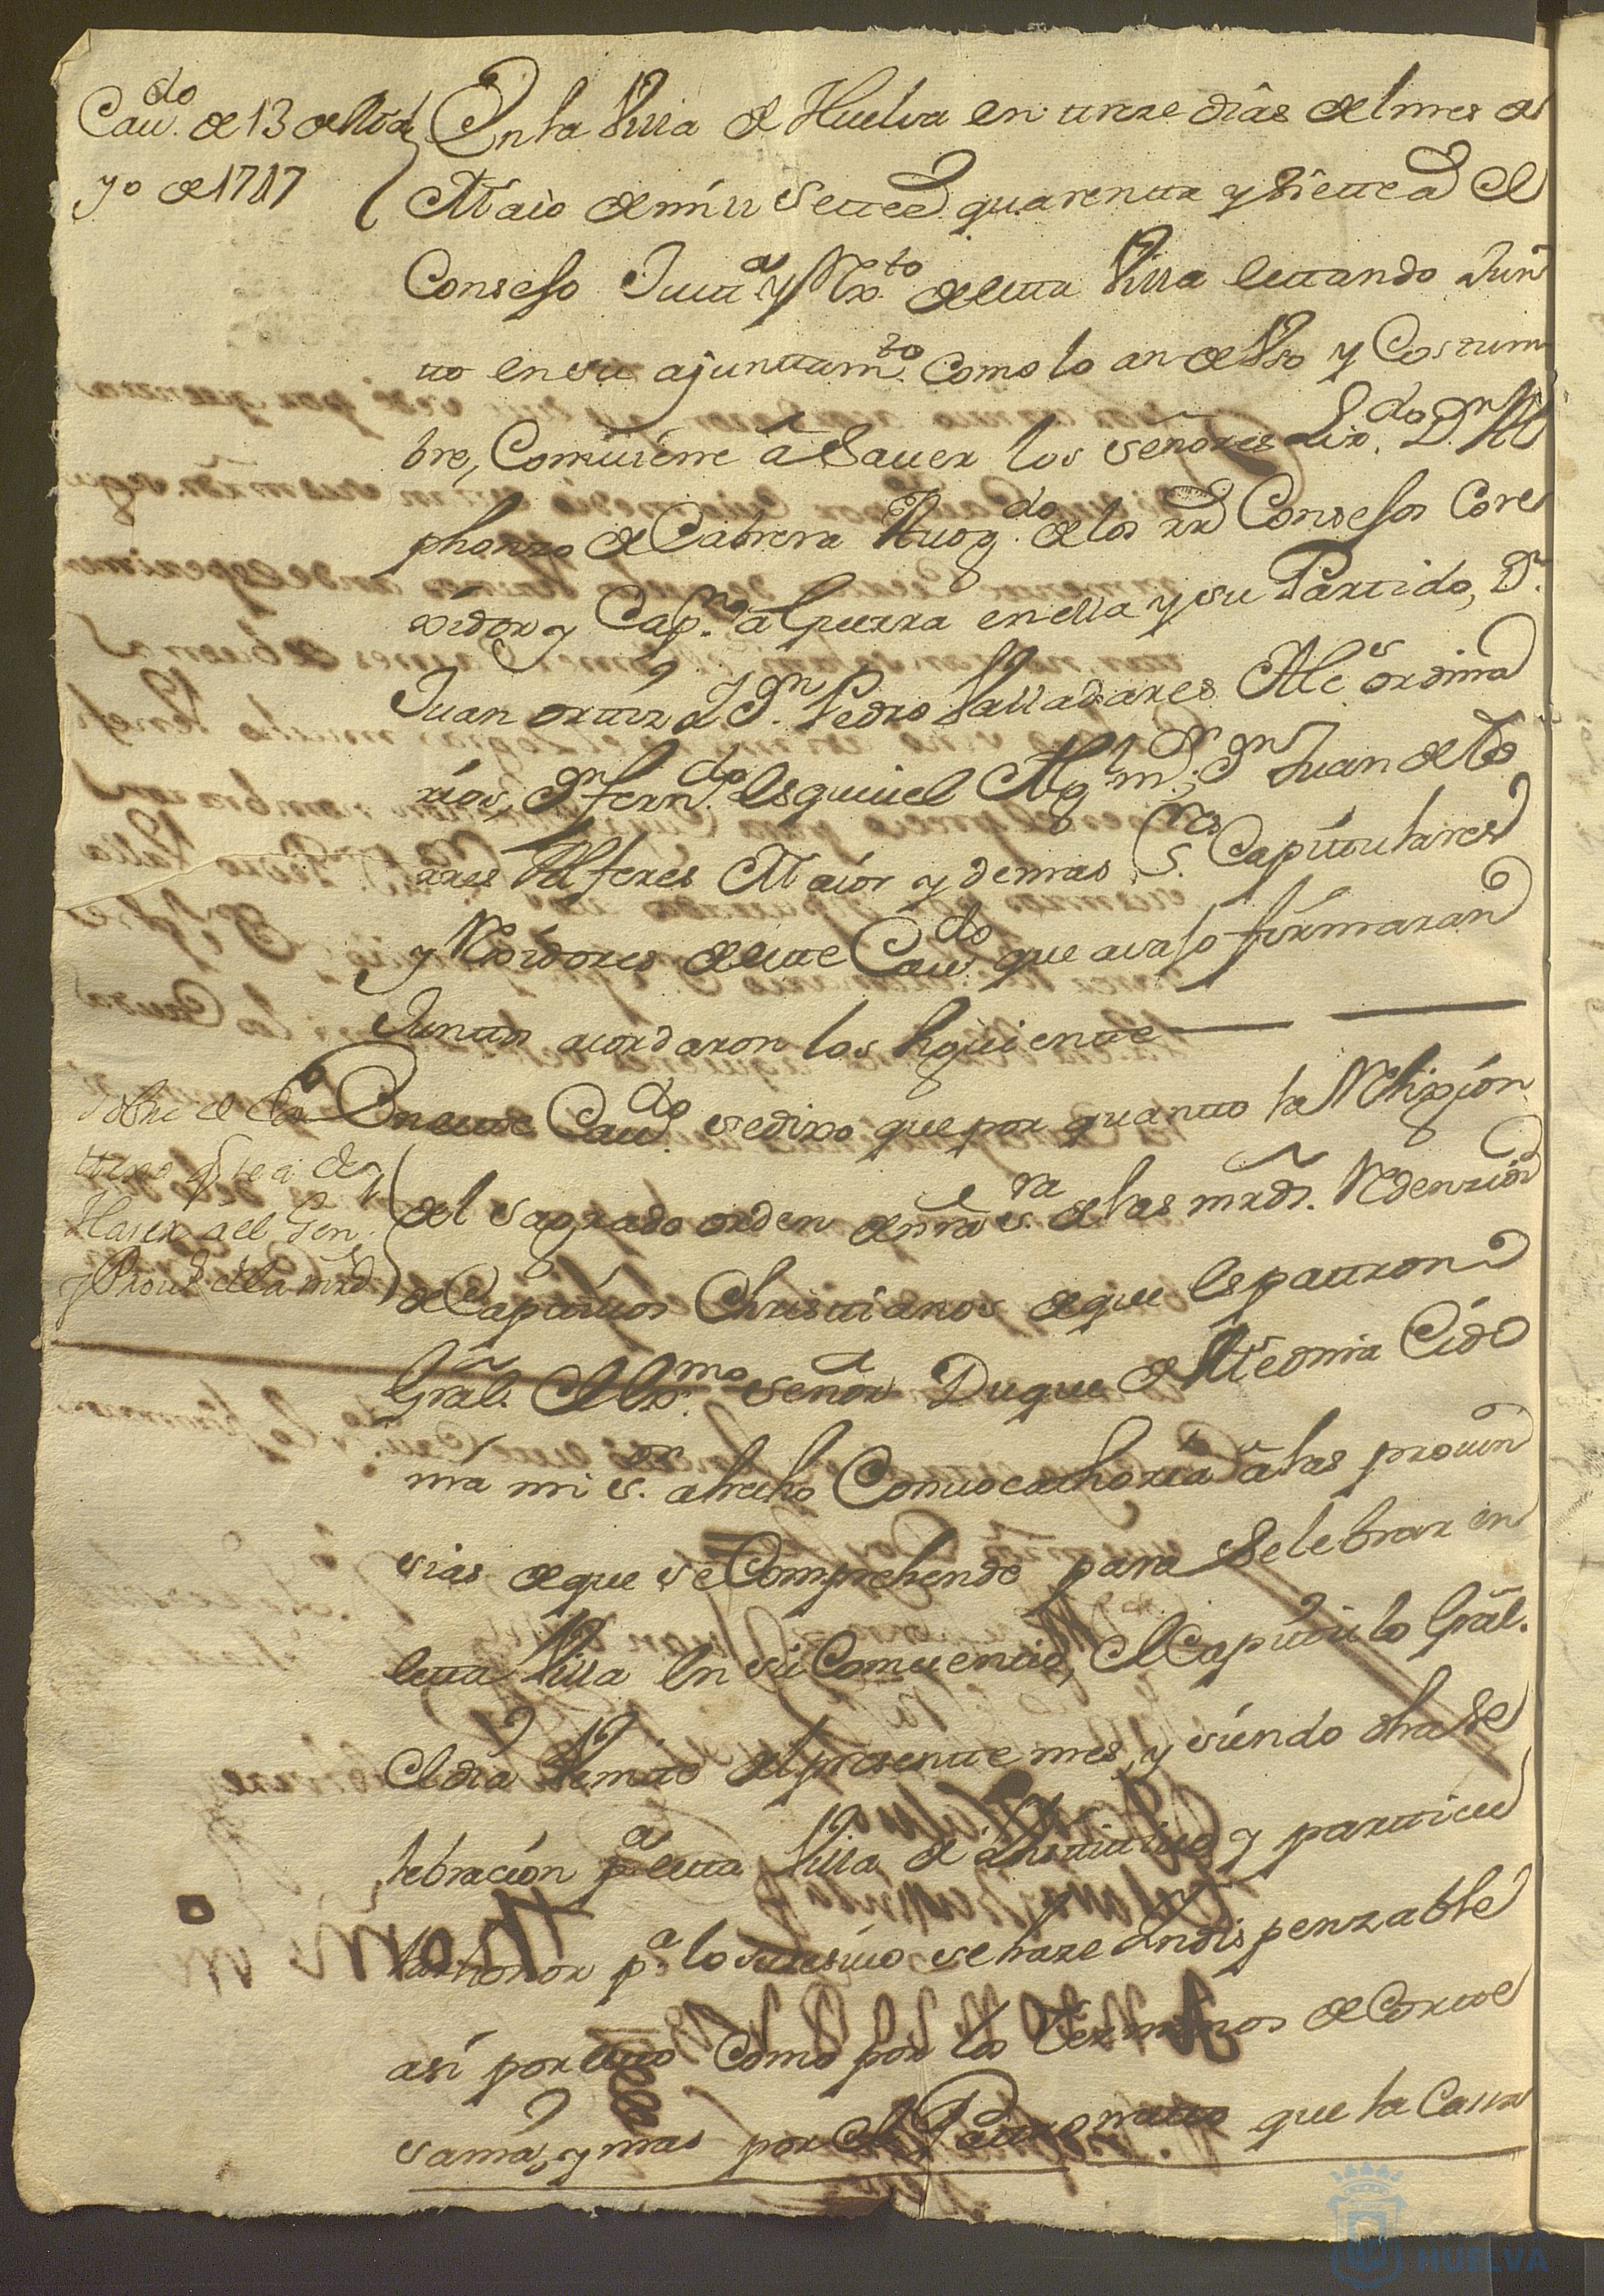 Cau.do de 13 de Ma
yo de 1747
En la Villa de Huelva en treze dias del mes de
Maio de mill settes. quarenta y siette a. el
Consejo Justt.a y Rx.to de esta Villa estando Jun
tto en su ajunttam.to como lo an de Vso y Costum
bre, Comuiene â Sauer los señores Liz.do D.n Al
phonzo de Cabrera Auog.do de los rs Consejos Core
xidor y Cap.n â Guerra en ella y su Parttido, D.n
Juan orttiz D.n Pedro Valladares Alc.s ordina
rios, D.n Fern.do Esquiuel Alg.l m.r D.n Juan de
ares Alferes Maior y demas S.res Capittulares
y Rexidores de este Cau.do que auajo firmaran
Junttos acordaron los siguiente
Sobre el
que se a de
Haser a el Gen.
y Prou.s de la mrd
En este Cau.do se dixo que por quantto la Relixion
del sagrado orden de nra s.ra de las mrds. Redenzion
de Capttiuos Christtianos de que es pattron
Gral. el Ex.mo señor Duque de Medina Cido
nia mi s.or a hecho Comuocathoria â las prouin
sias de que se Comprehende para Selebrar en
esta Villa en su Comuentto, el Capittulo Gral.
el dia Veintte del presentte mes, y siendo dha se
lebracion p.a esta Villa de y partticu
lar honor p.a lo susesiuo se haze Yndispenzable
asi por esto Como por los tterminos de Cortte
sania, y mas por el Pattronatto que la Cassa
HUELVA